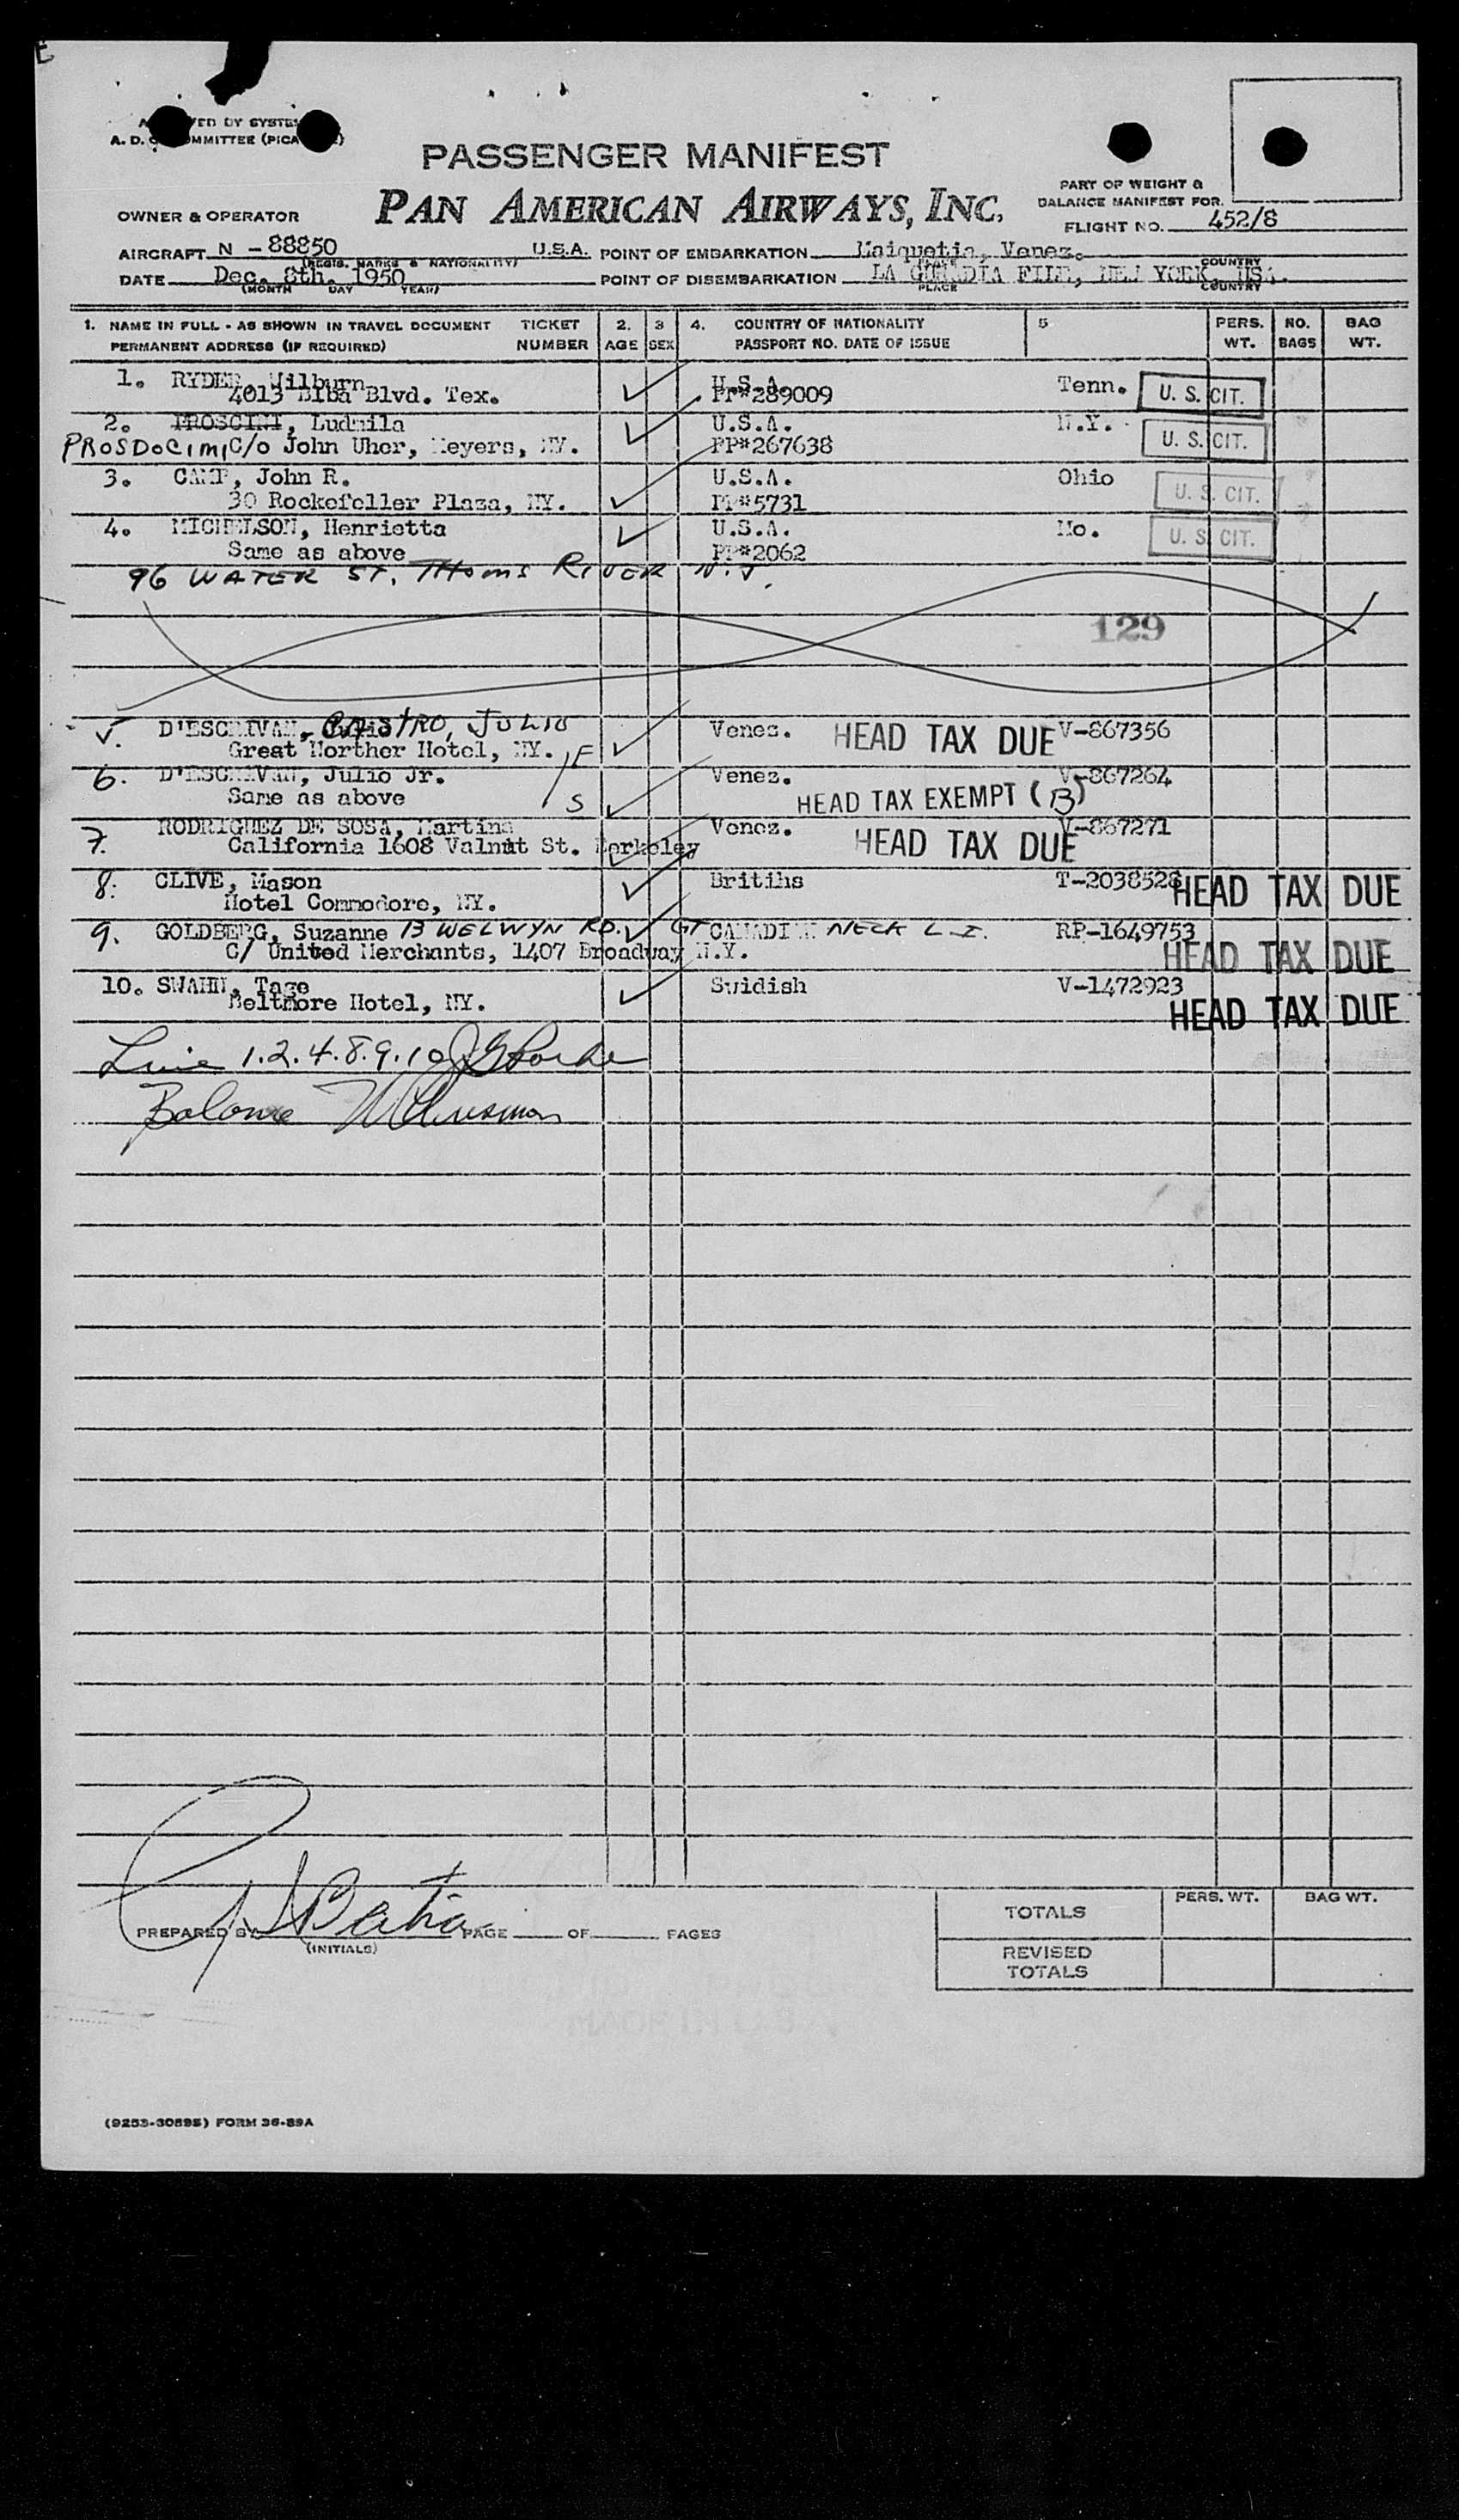 PASSENGER MANIFEST
PAN AMERICAN AIRWAYS, INC.
A. D. MMITTEE (PICA
PART OF WEIGHT &
BALANCE MANIFEST FOR
FLIGHT NO. 452/8
OWNER & OPERATOR
AIRCRAFT N - 88850 U.S.A. POINT OF EMBARKATION Maiquetia, Venez.
(REGIS. MARKS & NATIONALITY) PLACE COUNTRY
DATE Dec. 8th. 1950 POINT OF DISEMBARKATION LA GUARDIA FILE, NEW YORK, USA.
(MONTH DAY YEAR) PLACE COUNTRY
1. NAME IN FULL - AS SHOWN IN TRAVEL DOCUMENT TICKET 2. 3 4. COUNTRY OF NATIONALITY 5 PERS. NO. BAG
PERMANENT ADDRESS (IF REQUIRED) NUMBER AGE SEX PASSPORT NO. DATE OF ISSUE WT. BAGS WT.
1. RYDER, Wilburn U.S.A. Tenn. U. S. CIT.
4013 Blvd. Tex. PP#289009
2. PROSCINI, Ludmila U.S.A. N.Y. U. S. CIT.
PROSDOCIMI C/o John Uher, Meyers, NY. PP#267638
3. CAMP, John R. U.S.A. Ohio U. S. CIT.
30 Rockefeller Plaza, NY. PP#5731
4. MICHELSON, Henrietta U.S.A. Mo. U. S. CIT.
Same as above PP#2062
96 WATER ST. THOMS RIVER N.J.
129
5. D'ESCRIVAN, CASTRO, JULIO Venez. HEAD TAX DUE V-867356
Great Norther Hotel, NY. F
6. D'ESCRIVAN, Julio Jr. Venez. V-867264
Same as above S HEAD TAX EXEMPT (B)
7. RODRIGUEZ DE SOSA, Martina Venez. HEAD TAX DUE V-867271
California 1608 Valnut St. Berkeley
8. CLIVE, Mason Britihs T-2038528 HEAD TAX DUE
Hotel Commodore, NY.
9. GOLDBERG, Suzanne 13 WELWYN RD. GT CANADIAN NECK L.I. RP-1649753
C/ United Merchants, 1407 Broadway N.Y. HEAD TAX DUE
10. SWAHN, Tage Swidish V-1472923
Beltmore Hotel, NY. HEAD TAX DUE
Line 1.2.4.8.9.10
Balance
PREPARED BY PAGE OF PAGES
(INITIALS)
PERS. WT. BAG WT.
TOTALS
REVISED
TOTALS
(9253-30895) FORM 36-89A